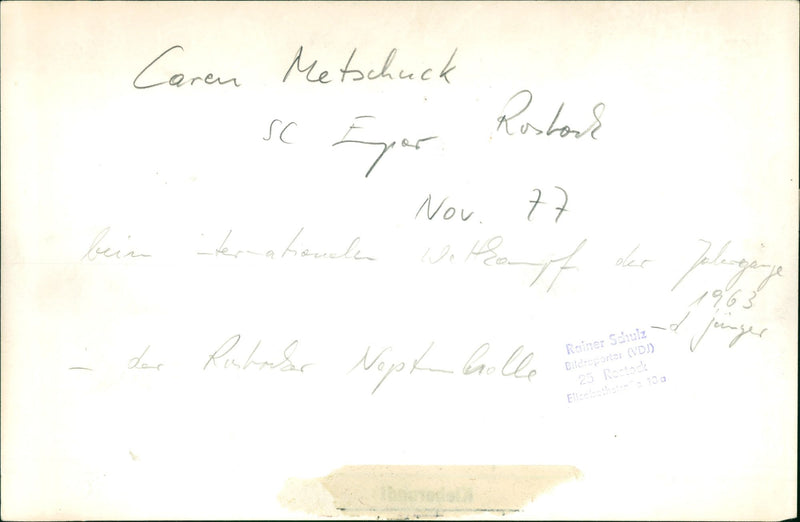 Caren Metschuck
SC Empor Rostock
Nov. 77
beim internationalen Wettkampf der Jahrgänge
1963
und jünger
in der Rostocker Neptunhalle
Rainer Schulz
Bildreporter (VDJ)
25 Rostock
10a
Kleberand!